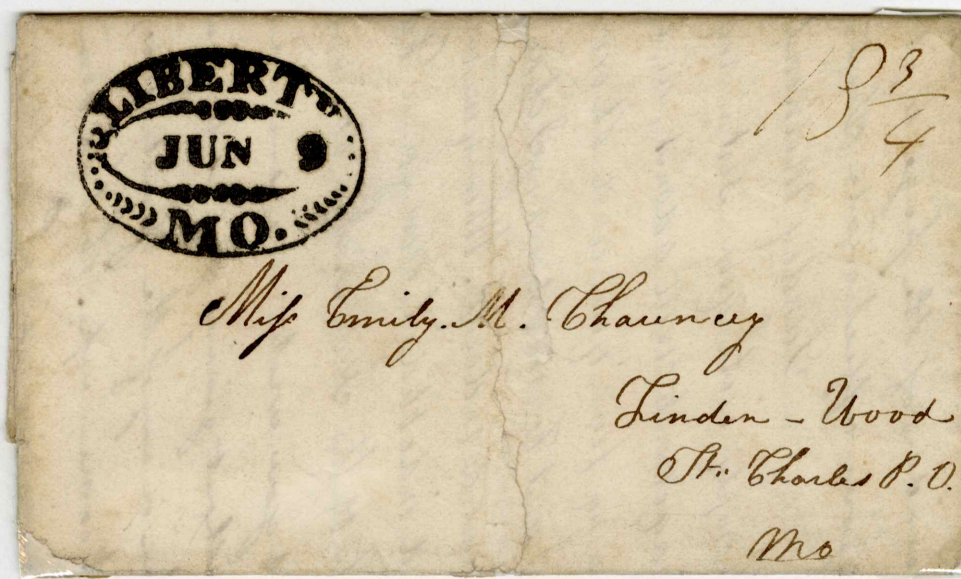 LIBERTY
JUN 9
MO.
18 3/4
Miss Emily. M. Chauncey
Linden - Wood
St. Charles P. O.
Mo